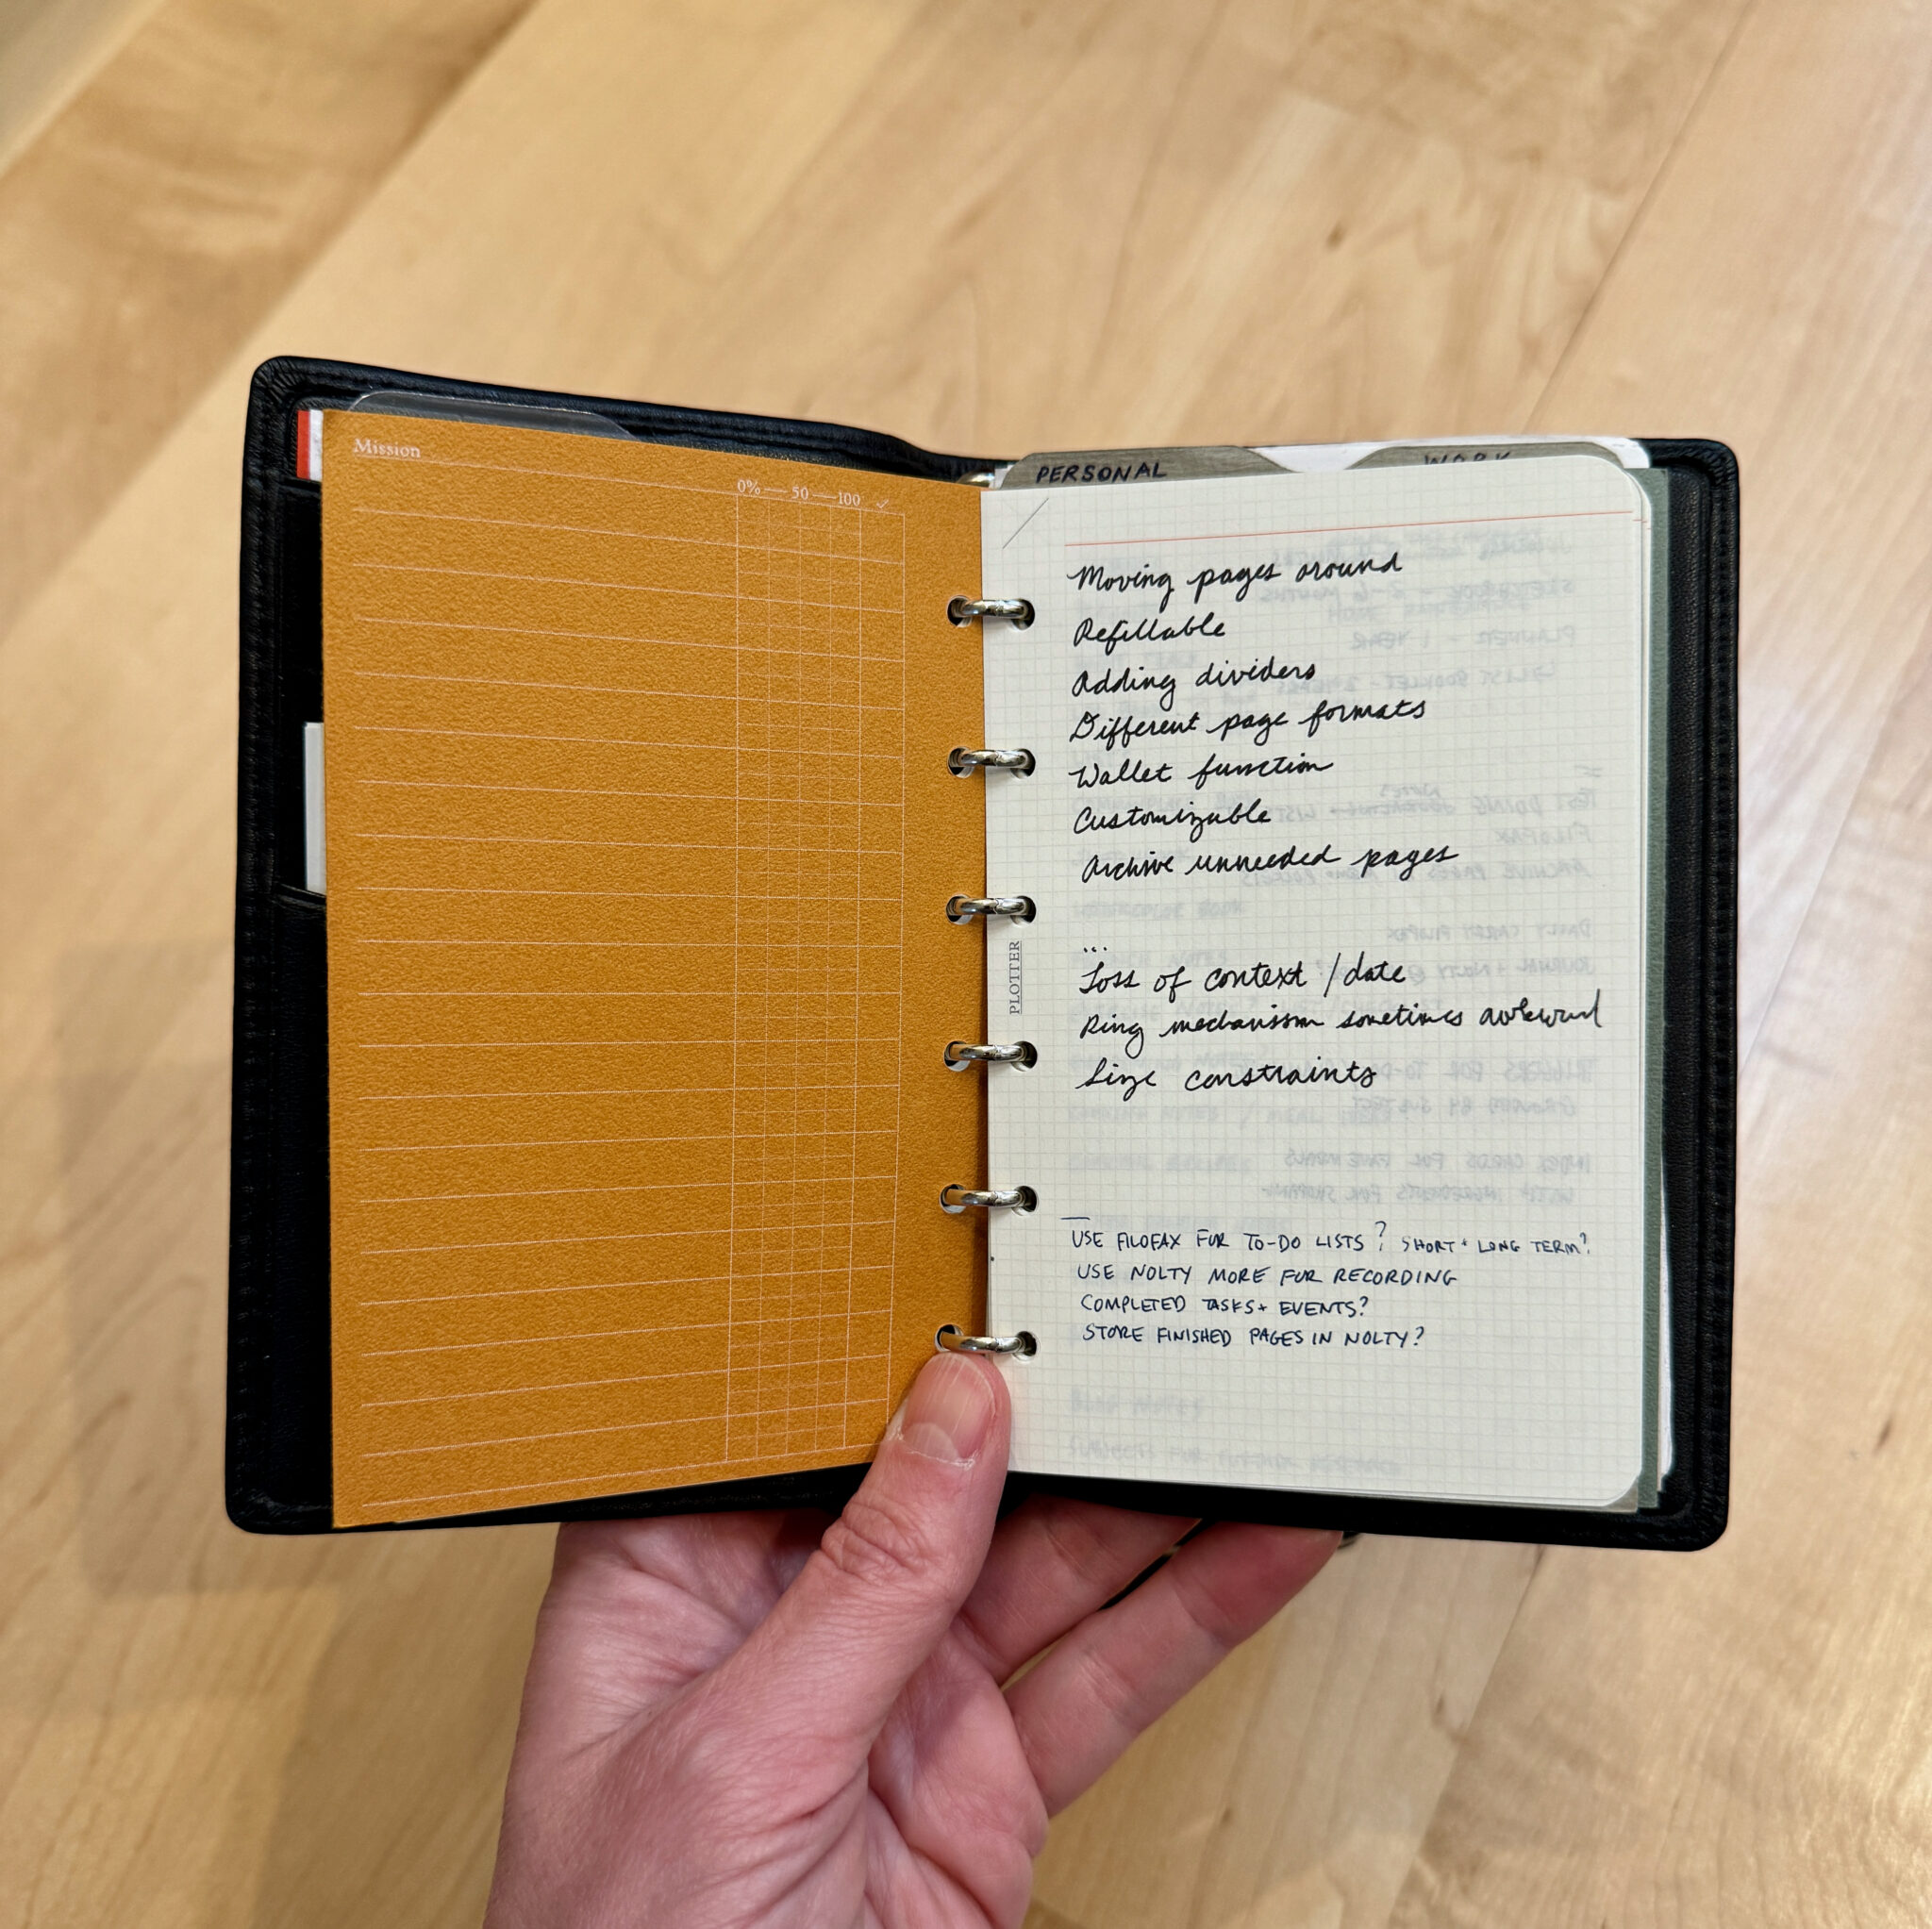 Mission
0% — 50 — 100 ✓
PERSONAL
WORK
Moving pages around
Refillable
Adding dividers
Different page formats
Wallet function
Customizable
Archive unneeded pages
...
Loss of context / date
Ring mechanism sometimes awkward
Size constraints
PLOTTER
USE FILOFAX FOR TO-DO LISTS? SHORT + LONG TERM?
USE NOLTY MORE FOR RECORDING
COMPLETED TASKS + EVENTS?
STORE FINISHED PAGES IN NOLTY?